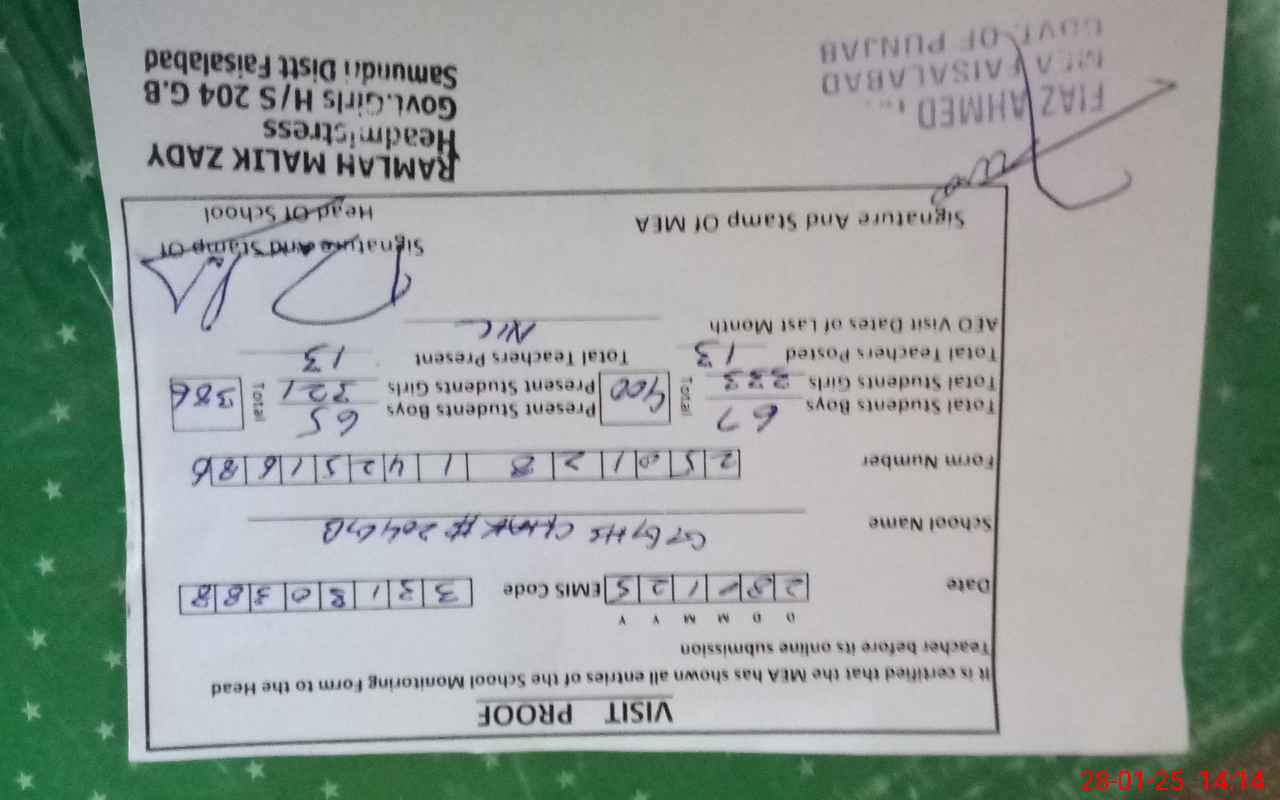 VISIT PROOF
It is certified that the MEA has shown all entries of the School Monitoring Form to the Head
Teacher before its online submission
D D M M Y Y
Date 28 1 25 EMIS Code 33180388
School Name GGHS CHAK # 204 GB
Form Number 25012814251686
Total Students Boys 67 Total 400 Present Students Boys 65 Total 386
Total Students Girls 333 Present Students Girls 321
Total Teachers Posted 13 Total Teachers Present 13
AEO Visit Dates of Last Month NIL
Signature And Stamp Of MEA
Signature And Stamp Of
Head Of School
FIAZ AHMED
MEA FAISALABAD
GOVT. OF PUNJAB
RAMLAH MALIK ZADY
Headmistress
Govt.Girls H/S 204 G.B
Samundri Distt Faisalabad
28-01-25 14:14